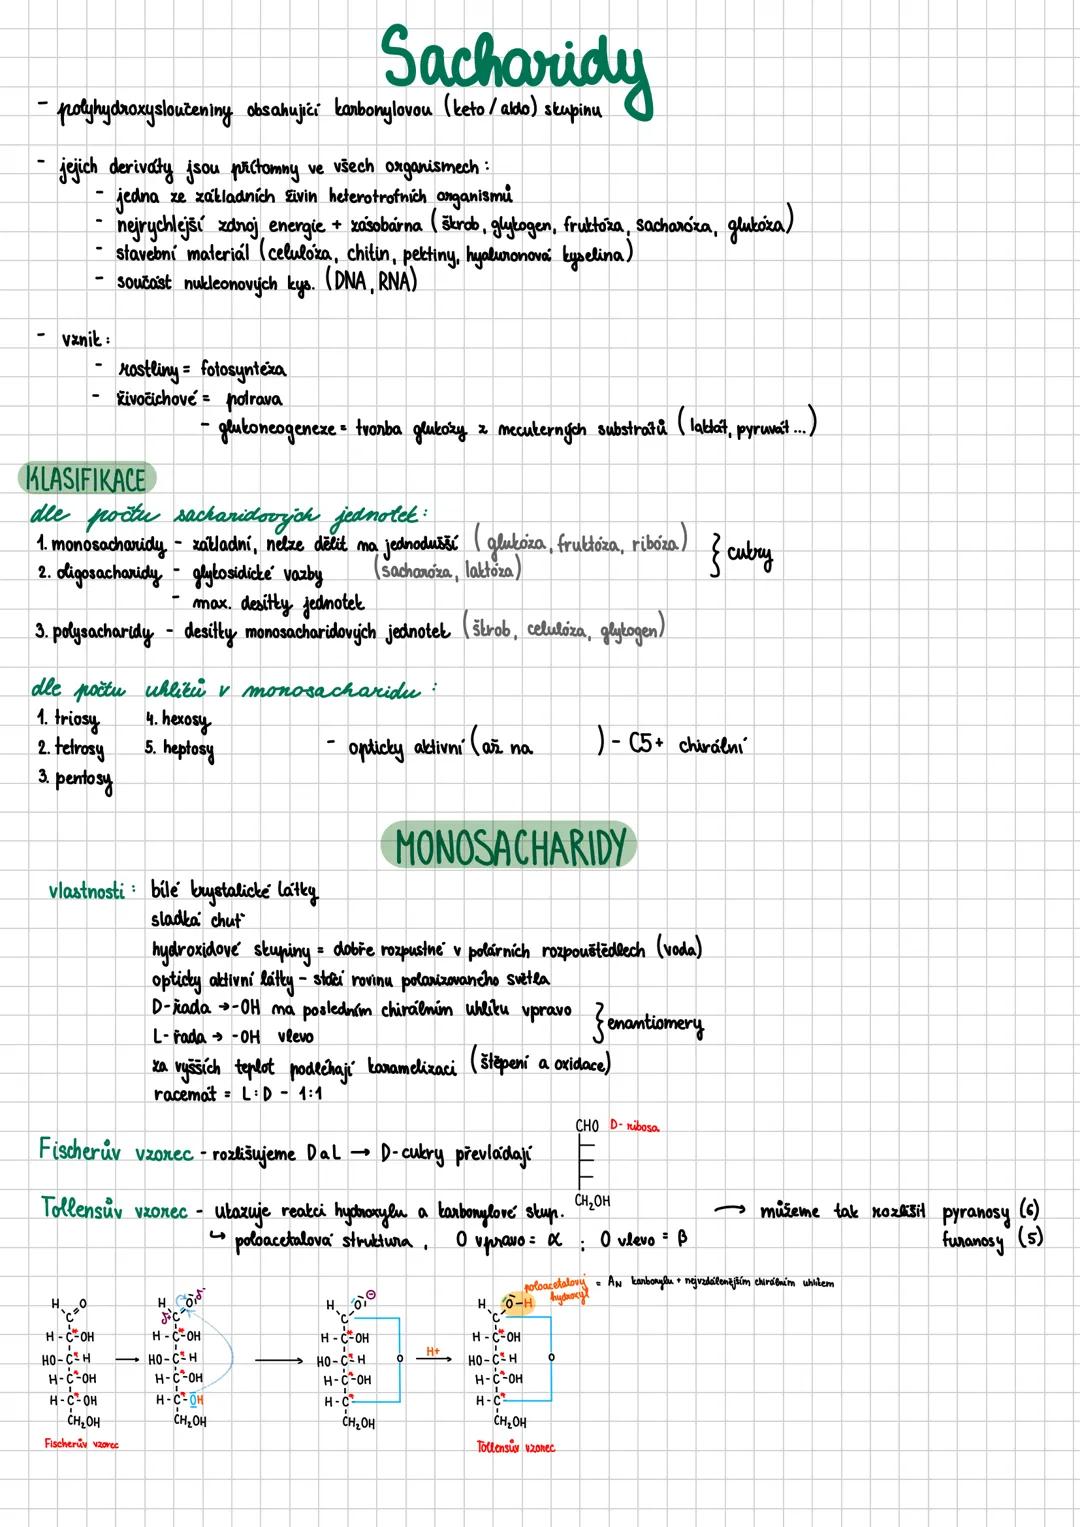 Sacharidy
- polyhydroxysloučeniny obsahující karbonylovou (keto / aldo) skupinu
- jejich deriváty jsou přítomny ve všech organismech :
- jedna ze základních živin heterotrofních organismů
- nejrychlejší zdroj energie + zásobárna (škrob, glykogen, fruktóza, sacharóza, glukóza)
- stavební materiál (celulóza, chitin, pektiny, hyaluronová kyselina)
- součást nukleonových kys. (DNA, RNA)
- vznik :
- rostliny = fotosyntéza
- živočichové = potrava
- glukoneogeneze = tvorba glukózy z necukerných substrátů (laktát, pyruvát ...)
KLASIFIKACE
dle počtu sacharidových jednotek :
1. monosacharidy - základní, nelze dělit na jednodušší (glukóza, fruktóza, ribóza) } cukry
2. oligosacharidy - glykosidické vazby (sacharóza, laktóza)
- max. desítky jednotek
3. polysacharidy - desítky monosacharidových jednotek (škrob, celulóza, glykogen)
dle počtu uhlíků v monosacharidu :
1. triosy 4. hexosy
2. tetrosy 5. heptosy - opticky aktivní (až na ) - C5+ chirální
3. pentosy
MONOSACHARIDY
vlastnosti : bílé krystalické látky
sladká chuť
hydroxidové skupiny = dobře rozpustné v polárních rozpouštědlech (voda)
opticky aktivní látky - stáčí rovinu polarizovaného světla
D-řada → -OH na posledním chirálním uhlíku vpravo } enantiomery
L-řada → -OH vlevo
za vyšších teplot podléhají karamelizaci (štěpení a oxidace)
racemát = L : D - 1:1
CHO D-ribosa
Fischerův vzorec - rozlišujeme D a L → D-cukry převládají
CH₂OH
Tollensův vzorec - ukazuje reakci hydroxylu a karbonylové skup. → můžeme tak rozlišit pyranosy (6)
↳ poloacetalová struktura, O vpravo = α ; O vlevo = β furanosy (5)
poloacetalový hydroxyl = AN karbonylu + nejvzdálenějším chirálním uhlíkem
H O H O δ- H O ⊖ H O-H
C δ+ C C C
H-C*-OH H-C*-OH H-C*-OH H-C*-OH
HO-C*-H → HO-C*-H → HO-C*-H O H+ → HO-C*-H O
H-C*-OH H-C*-OH H-C*-OH H-C*-OH
H-C*-OH H-C*-OH H-C* H-C*
CH₂OH CH₂OH CH₂OH CH₂OH
Fischerův vzorec Tollensův vzorec